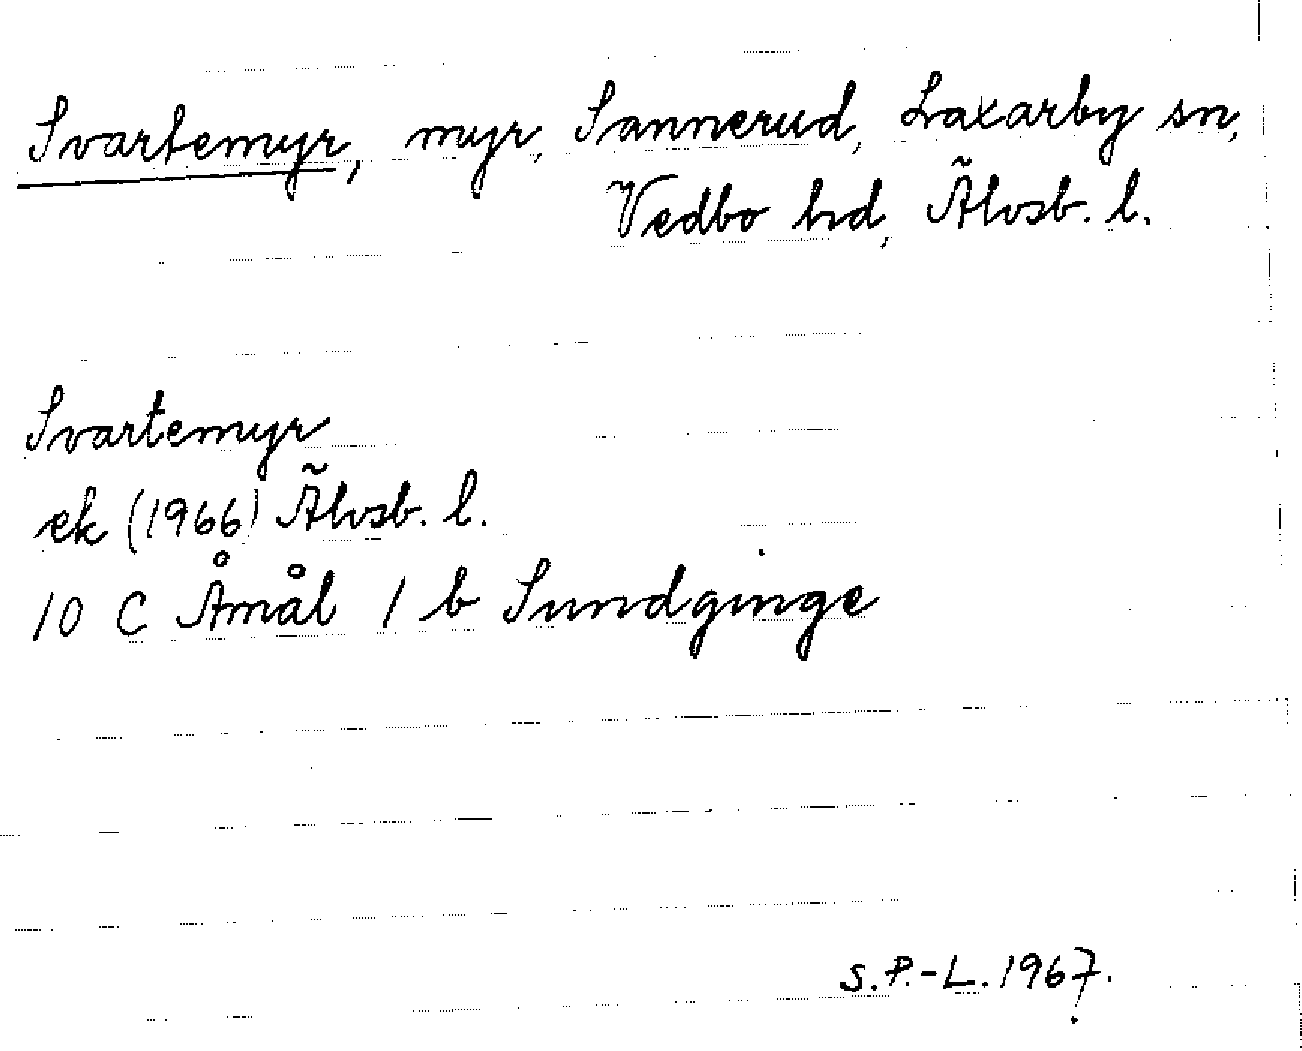 Svartemyr, myr, Sannerud, Laxarby sn,
Vedbo hd, Älvsb. l.
Svartemyr
ek (1966) Älvsb. l.
10 C Åmål 1 b Sundginge
S.P.-L. 1967.